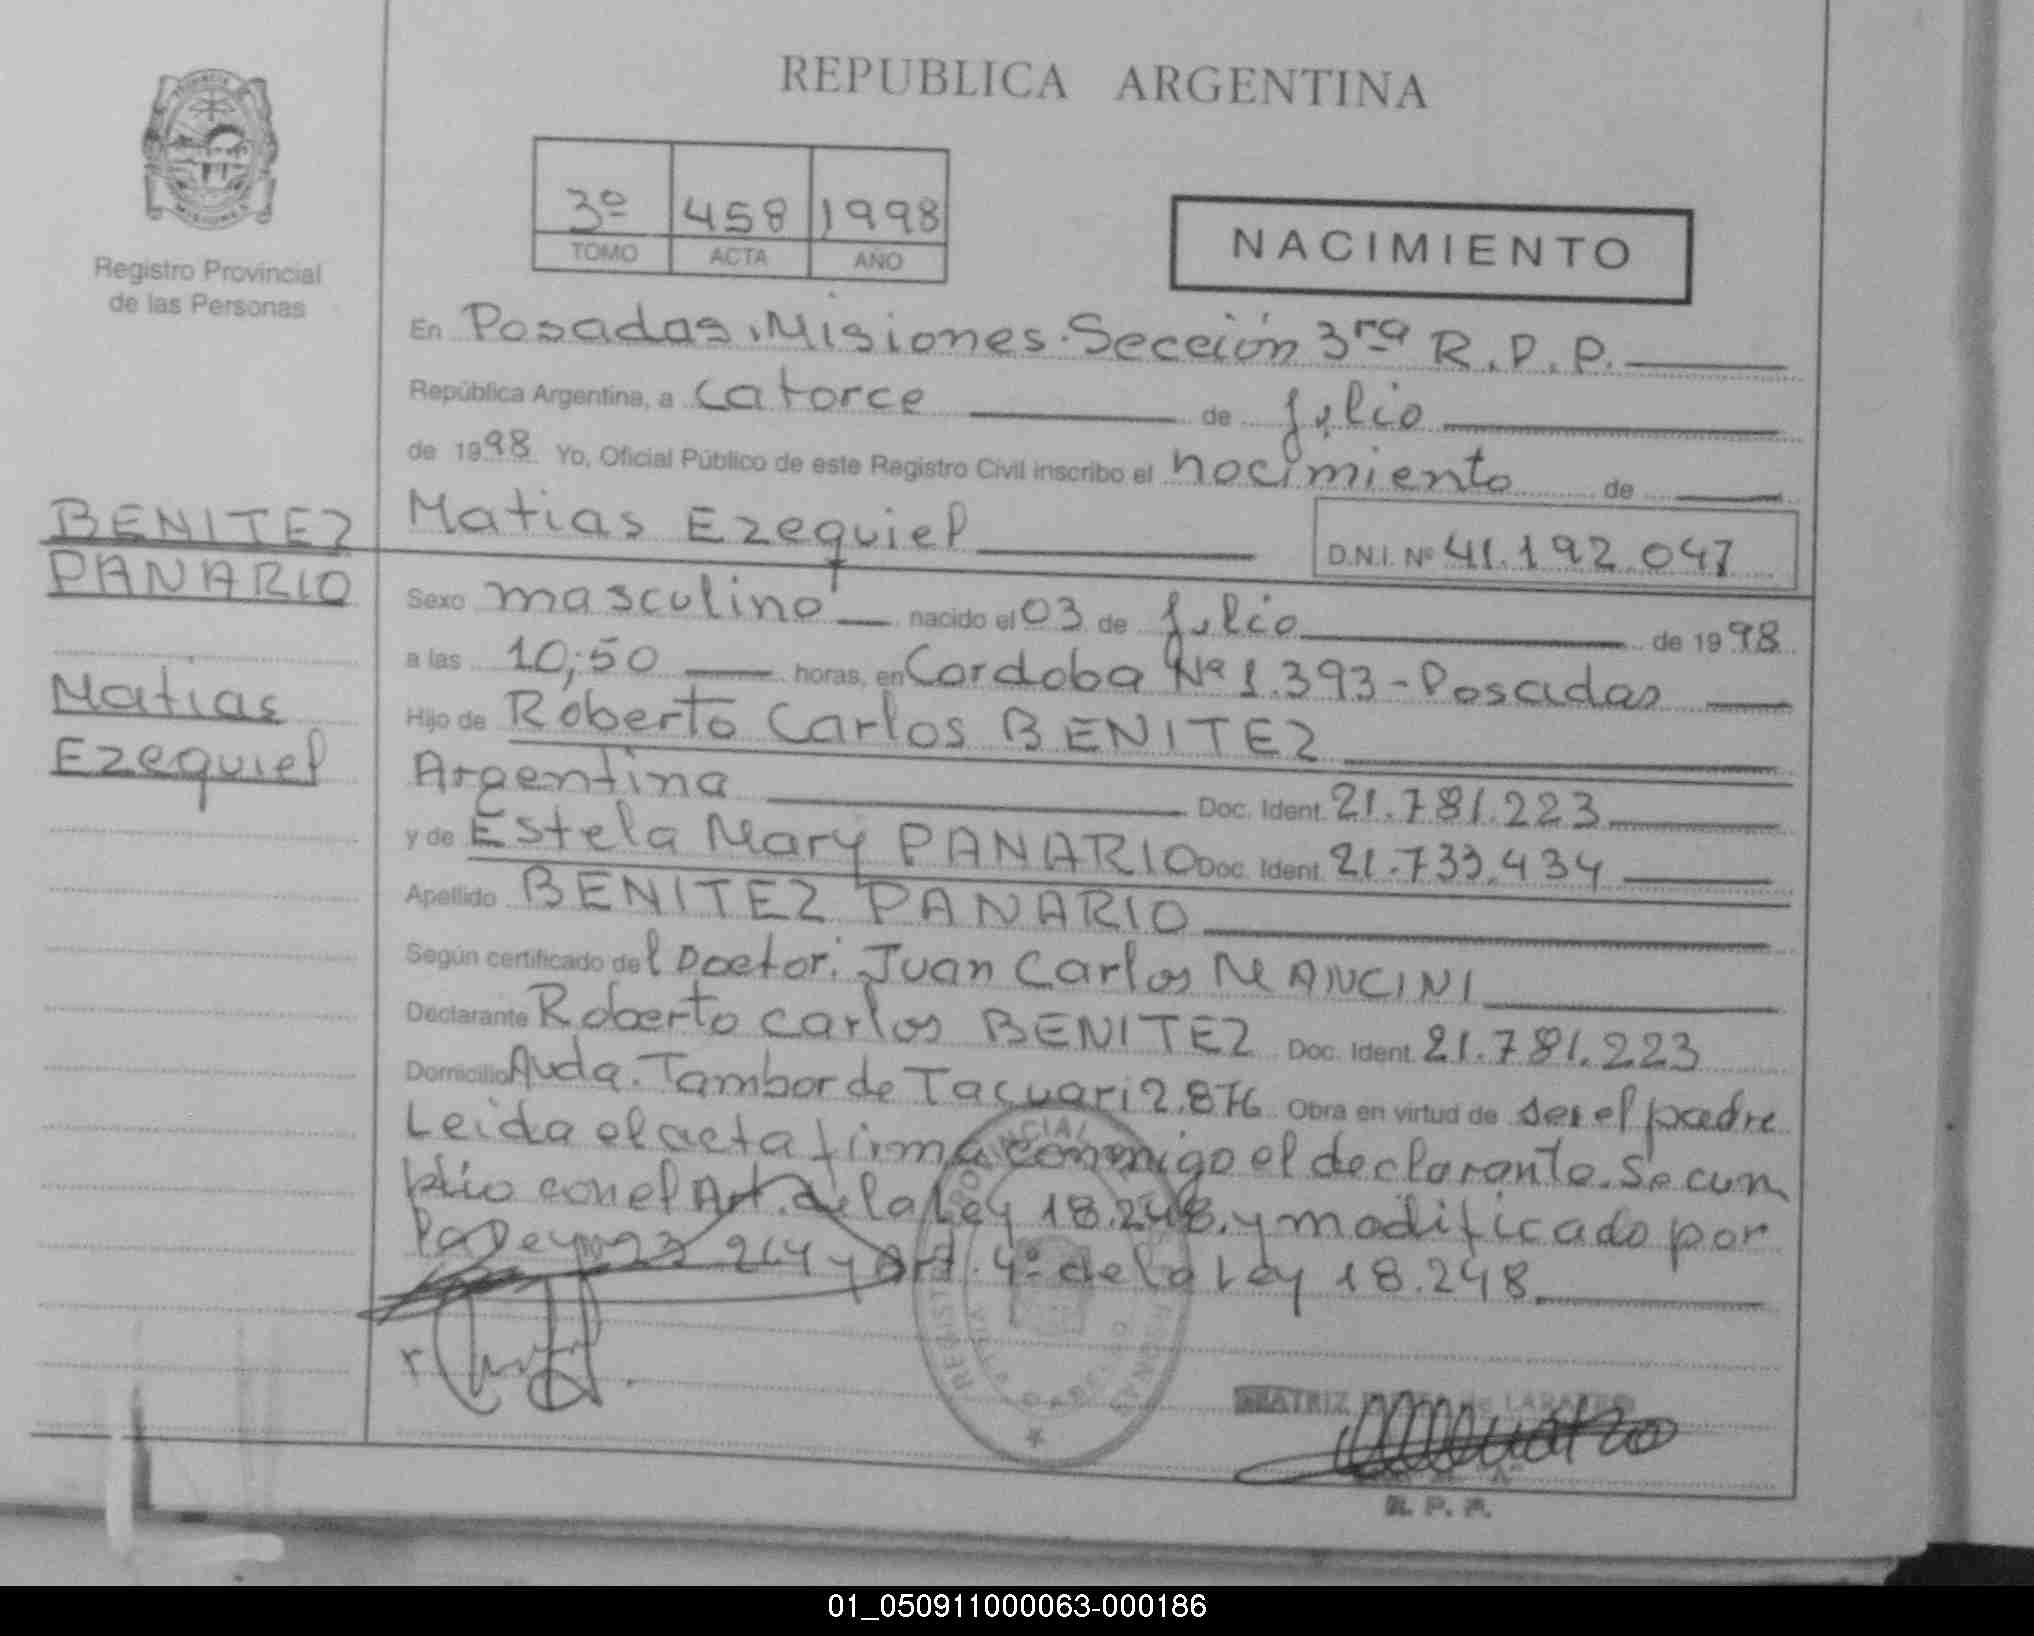 REPUBLICA ARGENTINA
MISIONES
Registro Provincial
de las Personas
3º 458 1998
TOMO ACTA AÑO
NACIMIENTO
En Posadas, Misiones. Sección 3ra R.P.P.
República Argentina, a catorce de julio
de 1998 Yo, Oficial Público de este Registro Civil inscribo el nacimiento de
BENITEZ
PANARIO
Matias
Ezequiel
Matias Ezequiel D.N.I. Nº 41.192.047
Sexo masculino nacido el 03 de julio de 1998
a las 10,50 horas, en Cordoba Nº 1.393 - Posadas
Hijo de Roberto Carlos BENITEZ
Argentina Doc. Ident. 21.781.223
y de Estela Mary PANARIO Doc. Ident. 21.733.434
Apellido BENITEZ PANARIO
Según certificado del Doctor: Juan Carlos MANCINI
Declarante Roberto Carlos BENITEZ Doc. Ident. 21.781.223
Domicilio Avda. Tambor de Tacuari 2.876 Obra en virtud de ser el padre
Leida el acta firma conmigo el declarante. Se cum
plio con el Art. de la Ley 18.248. y modificado por
la Ley 23 264 y Art. 4º de la Ley 18.248
BEATRIZ de
R. P. P.
01_050911000063-000186